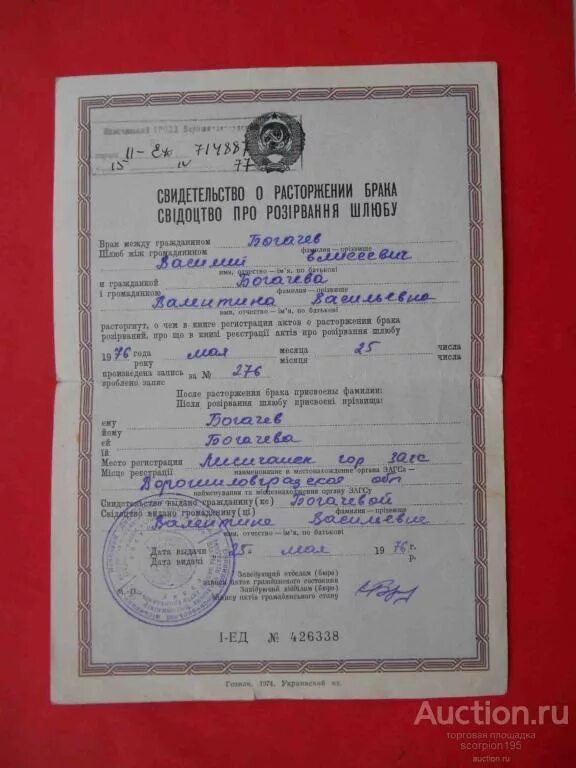 II-ЕК 714887
15 IV 77
СВИДЕТЕЛЬСТВО О РАСТОРЖЕНИИ БРАКА
СВІДОЦТВО ПРО РОЗІРВАННЯ ШЛЮБУ
Брак между гражданином Богачев
Шлюб між громадянином фамилия — прізвище
Василий Елисеевич
имя, отчество — ім'я, по батькові
и гражданкой Богачева
і громадянкою фамилия — прізвище
Валентина Васильевна
имя, отчество — ім'я, по батькові
расторгнут, о чем в книге регистрации актов о расторжении брака
розірваний, про що в книзі реєстрації актів про розірвання шлюбу
1976 года мая месяца 25 числа
року місяця числа
произведена запись за № 276
зроблено запис
После расторжения брака присвоены фамилии:
Після розірвання шлюбу присвоєні прізвища:
ему Богачев
йому
ей Богачева
їй
Место регистрации Лисичанск гор ЗАГС
Місце реєстрації наименование и местонахождение органа ЗАГСа —
Ворошиловградской обл
найменування та місцезнаходження органу ЗАГСу
Свидетельство выдано гражданину (ке) Богачевой
Свідоцтво видано громадянину (ці) фамилия — прізвище
Валентине Васильевне
имя, отчество — ім'я, по батькові
Дата выдачи 25 мая 1976 г.
Дата видачі р.
Заведующий отделом (бюро)
записи актов гражданского состояния
Завідуючий відділом (бюро)
запису актів громадянського стану
М. П.
I-ЕД № 426338
Гознак. 1974. Украинский яз.
Auction.ru
торговая площадка
scorpion195
auction.ru